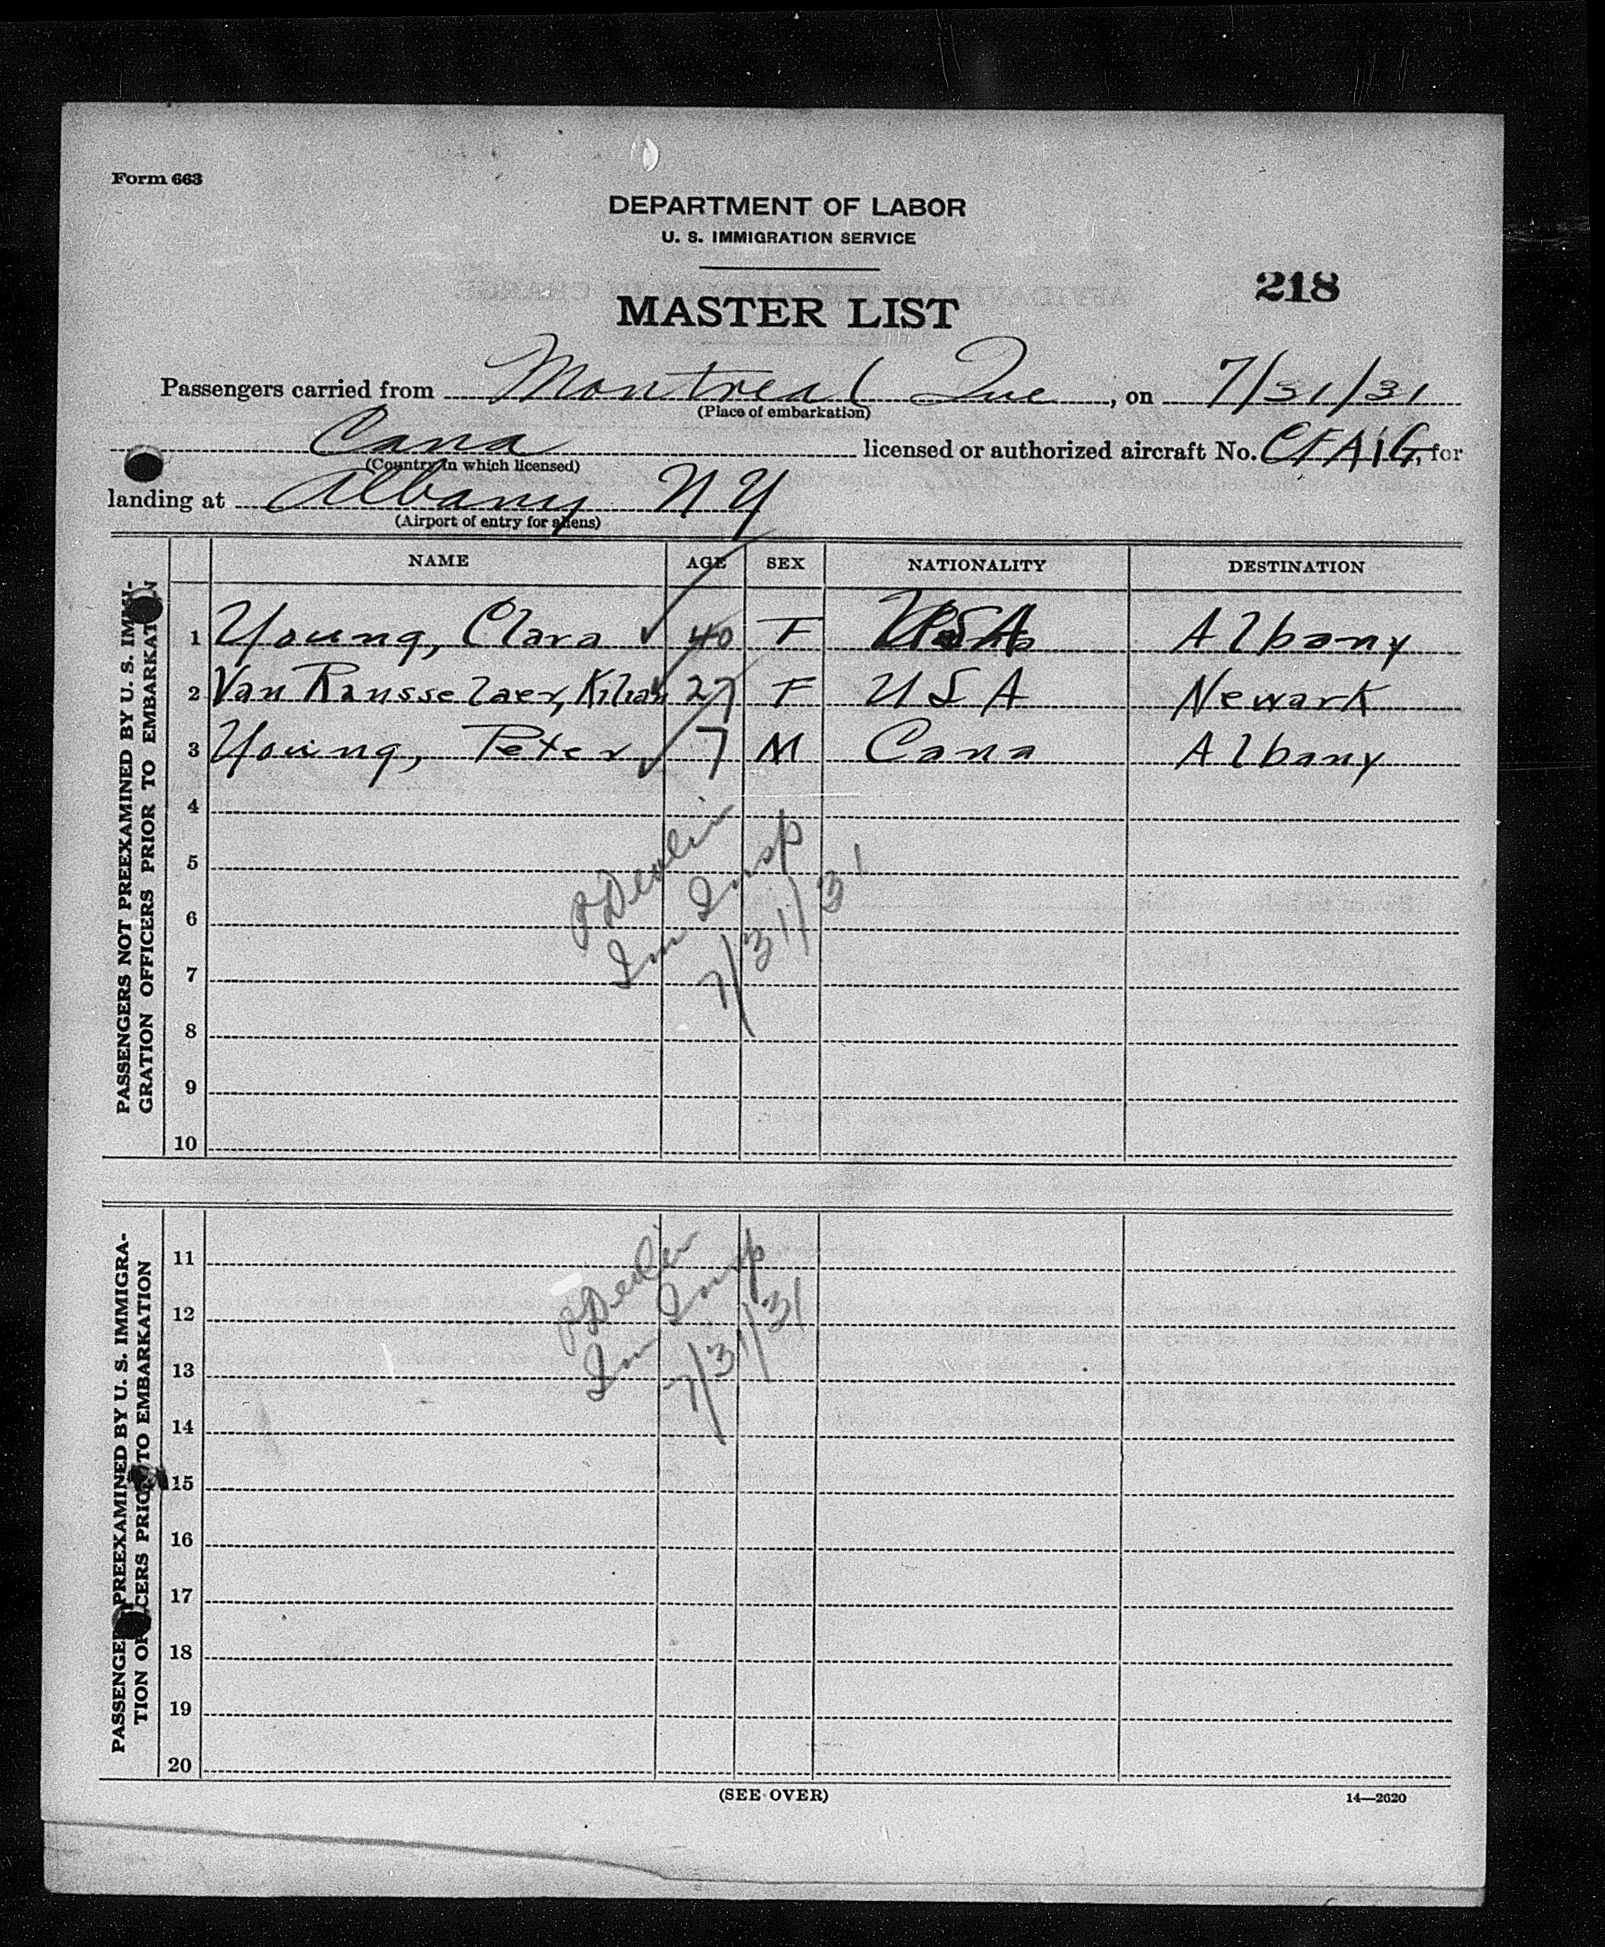 Form 663
DEPARTMENT OF LABOR
U. S. IMMIGRATION SERVICE
218
MASTER LIST
Passengers carried from Montreal Que, on 7/31/31
(Place of embarkation)
Cana licensed or authorized aircraft No. CFAIG, for
(Country in which licensed)
landing at Albany NY
(Airport of entry for aliens)
NAME AGE SEX NATIONALITY DESTINATION
PASSENGERS NOT PREEXAMINED BY U. S. IMMI-
GRATION OFFICERS PRIOR TO EMBARKATION
1 Young, Clara 40 F USA Albany
2 Van Ransselaer, Kilian 27 F USA Newark
3 Young, Peter 7 M Cana Albany
4
5
6
7
8
9
10
PDevlin
Im Insp
7/31/31
PASSENGERS PREEXAMINED BY U. S. IMMIGRA-
TION OFFICERS PRIOR TO EMBARKATION
11
12
13
14
15
16
17
18
19
20
PDevlin
Im Insp
7/31/31
(SEE OVER)
14—2620